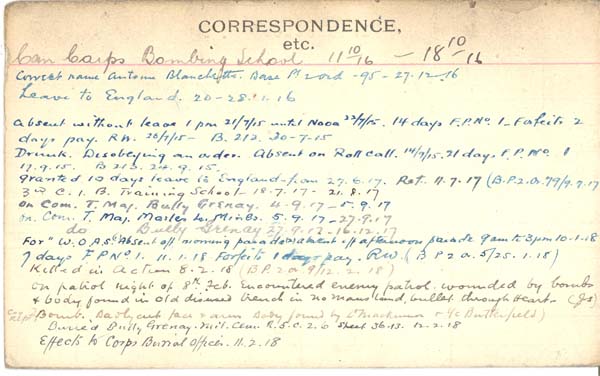 CORRESPONDENCE,
etc.
Can Corps Bombing School 11 10/16 - 18 10/16
Correct name Antoine Blanchette. Base Pt 2 ord -95- 27.12.16
Leave to England. 20-28.1.16
Absent without leave 1 pm 21/7/15 until Noon 22/7/15. 14 days F.P. No. 1 - Forfeits 2
days pay. R.W. 26/7/15 - B. 212. 30-7-15
Drunk. Disobeying an order. Absent on Roll call. 14/9/15. 21 days F.P. No 1
17.9.15. B 213. 24.9.15.
Granted 10 days leave to England from 27.6.17. Ret. 11.7.17 (B.P.2.o.79/9.7.17
3rd C.I.B. Training School - 18.7.17 - 21.8.17
on Com. T. Maj. Bully Grenay. 4-9.17 - 5.9.17
on. Com. T. Maj. Marles Les Mines. 5.9.17 - 27.9.17
do Bully Grenay 27.9.17 - 16.12.17
For "W.O.A.S." Absent off morning parade & absent off afternoon parade 9 am to 3 pm 10-1.18
7 days F.P No 1. 11.1.18 Forfeits 1 days pay. R.W. (B P 2 o. 5/25.1.18)
Killed in Action 8.2.18 (B.P.2 o 9/12.2.18)
on patrol night of 8th Feb. Encountered enemy patrol. wounded by bombs
& body found in old disused trench in no mans land, bullet through heart. (Js)
Bomb. Badly cut face & arms Body found by & Butterfield)
Buried Bully Grenay. Mil. Cem. R.5.C.2.6 Sheet 36.B. 12.2.18
Effects to Corps Burial Officer. 11.2.18